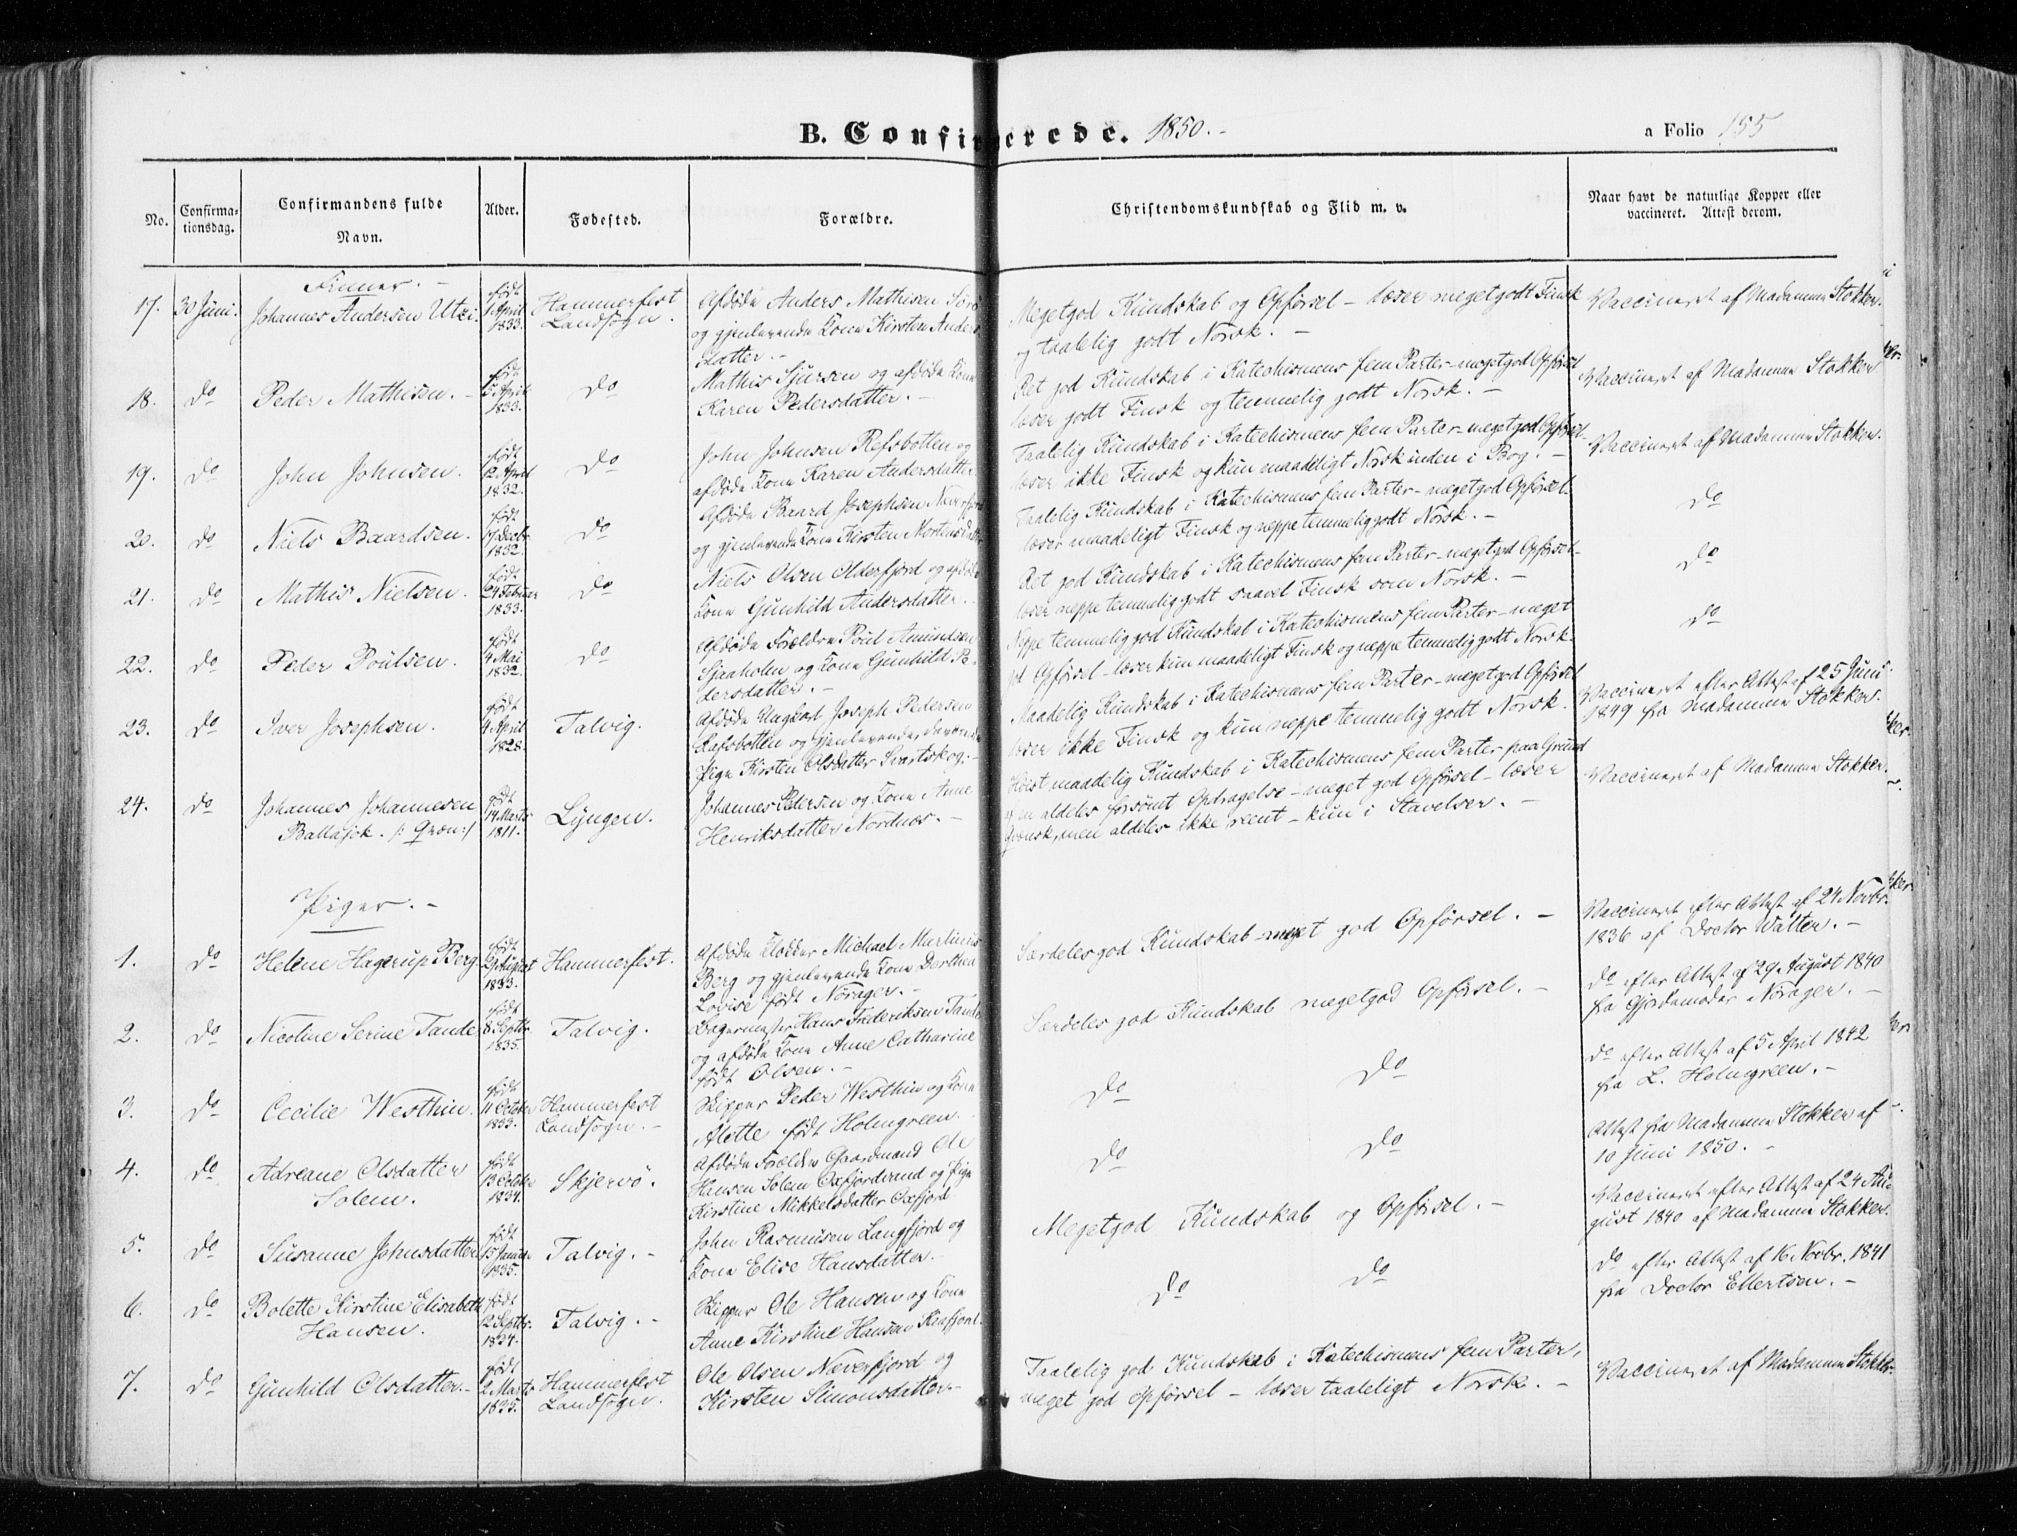 B. Confirmerede. 1850.-
a Folio 155
No.
Confirma-
tionsdag.
Confirmandens fulde
Navn.
Alder.
Fødested.
Forældre.
Christendomskundskab og Flid m. v.
Naar havt de naturlige Kopper eller
vaccineret. Attest derom.
Finner. -
17. 30 Juni. Johannes Andersen Utzi. født
1 April
1833. Hammerfest
Landsogn. Afdøde Anders Mathisen
og gjenlevende Kone Kirsten Anders
datter. - Megetgod Kundskab og Opførsel - læser megetgodt Finsk
og taalelig godt Norsk. - Vaccineret af Madamme Stokker.
18. do Peder Mathisen. - født
5 April
1833. do Mathis Sjursen og afdøde Kone
Karen Pedersdatter. - Ret god Kundskab i Katechismens fem Parter - megetgod Opførsel
læser godt Finsk og temmelig godt Norsk. - Vaccineret af Madamme Stokker
19. do John Johnsen. født
12 April
1832. do John Johnsen Refsbotten og
afdøde Kone Karen Andersdatter Taalelig Kundskab i Katechismens fem Parter - megetgod Opførsel-
læser ikke Finsk og kun maadeligt Norsk inden i Bog. - Vaccineret af Madamme Stokker.
20. do Niels Baardsen. født
17 Decbr
1832. do Afdøde Baard Josephsen Næverfjord
og gjenlevende Kone Kirsten Mortensdatter Taalelig Kundskab i Katechismens fem Parter - megetgod Opførsel-
læser maadeligt Finsk og neppe temmelig godt Norsk. - do
21. do Mathis Nielsen. født
24 Februar
1833. do Niels Olsen Olderfjord og afdøde
Kone Gunhild Andersdatter. Ret god Kundskab i Katechismens fem Parter - megetgod Opførsel-
læser neppe temmelig godt saavel Finsk som Norsk. - do
22. do Peder Poulsen. født
4 Mai
1832. do Afdøde Forældre Poul Amundsen
Sjaaholm og Kone Gunhild Pe-
dersdatter. - Neppe temmelig god Kundskab i Katechismens fem Parter - meget
god Opførsel - læser kun maadeligt Finsk og neppe temmelig godt Norsk. do
23. do Iver Josephsen. født
4 April
1828. Talvig. Afdøde Ungkarl Joseph Pedersen
Refsbotten og gjenlevende, daværende
Pige Kirsten Olsdatter Svartskog. - Maadelig Kundskab i Katechismens fem Parter - megetgod Opførsel
læser ikke Finsk og kun neppe temmelig godt Norsk. Vaccineret efter Attest af 25 Juni
1849 fra Madamme Stokker.
24. do Johannes Johannesen
Ballasjok. /: Qvæn:/ født
14 Marts
1811. Lyngen. Johannes Pedersen og Kone Anne
Henriksdatter Nordnæs. - Høist maadelig Kundskab i Katechismens fem Parter paa Grund
af en aldeles forsømt Opdragelse - meget god Opførsel - læser
Qvænsk, men aldeles ikke reent - kun i Stavelser. - Vaccineret af Madamme Stokker.
Piger. -
1. do Helene Hagerup Berg født
August
1833. Hammerfest. Afdøde Michael Martinus
Berg og gjenlevende Kone Dorthea
Lovise født Norager. - Særdeles god Kundskab - meget god Opførsel. - Vaccineret efter Attest af 24 Novbr.
1836 af Doctor Walter. -
2. do Nicoline Serine Tande født
8 Septbr
1835. Talvig. Bagermester Hans Frederiksen Tande
og afdøde Kone Anne Catharine
født Olsen. - Særdeles god Kundskab megetgod Opførsel. - do efter Attest af 29 August 1840
fra Gjordemoder Norager. -
3. do Cecilie Westhin. født
11 October
1833. Hammerfest
Landsogn. - Skipper Peder Westhin og Kone
Alette født Holmgreen. do do do efter Attest af 5 April 1842
fra L. Holmgreen. -
4. do Adreane Olsdatter
Solem. født
13 October
1834. Skjervø. Afdøde Forældre Gaardmand Ole
Hansen Solem Oxfjordvand og Pige
Kirstine Mikkelsdatter Oxfjord do do Attest fra Madamme Stokker af
10 Juni 1850. -
5. do Susanne Johnsdatter født
15 Januar
1835. Talvig. - John Rasmusen Langfjord og
Kone Elise Hansdatter. Megetgod Kundskab og Opførsel. - Vaccineret efter Attest af 24 Au-
gust 1840 af Madamme Stokker.
6. do Bolette Kirstine Elisabeth
Hansen. født
12 Septbr.
1834. Talvig. - Skipper Ole Hansen og Kone
Anne Kirstine Hansen Kaafjord. do do do efter Attest af 16 Novbr. 1841
fra Doctor Ellertsen. -
7. do Gunhild Olsdatter. - født
2 Marts
1835. Hammerfest
Landsogn. Ole Olsen Næverfjord og
Kirsten Simonsdatter. - Taalelig god Kundskab i Katechismens fem Parter,
meget god Opførsel - læser taaleligt Norsk. - Vaccineret af Madamme Stokker.